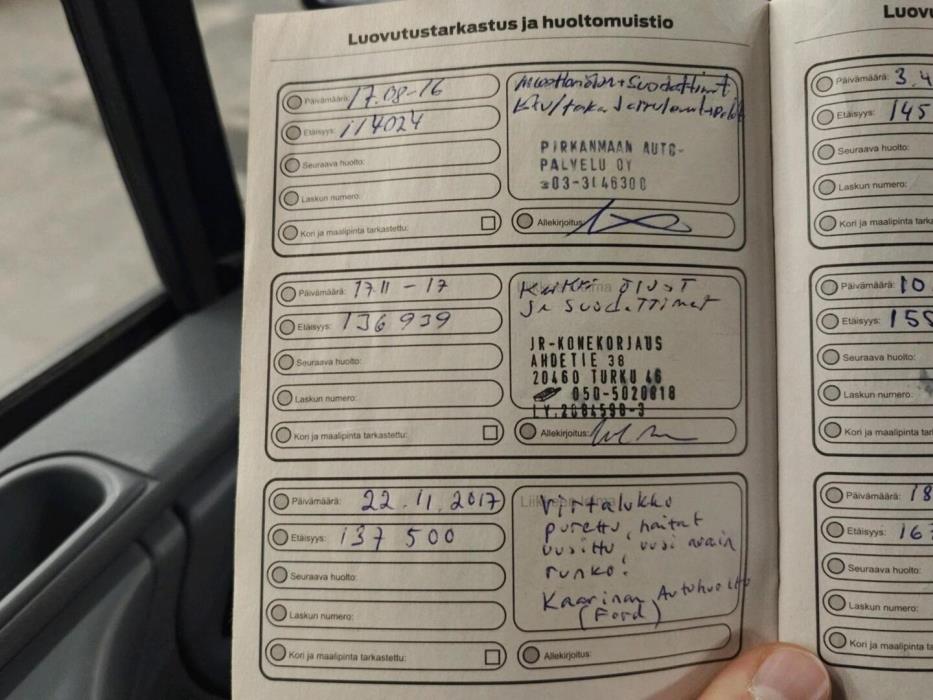 Luovutustarkastus ja huoltomuistio
Päivämäärä: 17.08-16
Etäisyys: 114024
Seuraava huolto:
Laskun numero:
Kori ja maalipinta tarkastettu:
Moottoriöljy+Suodattimet
Etu/taka Jarrulaput+palat
PIRKANMAAN AUTO-
PALVELU OY
03-3146300
Allekirjoitus:
Päivämäärä: 17.11-17
Etäisyys: 136 939
Seuraava huolto:
Laskun numero:
Kori ja maalipinta tarkastettu:
Kaikki ÖLJYT
ja suodattimet
JR-KONEKORJAUS
AHDETIE 38
20460 TURKU 46
050-5020818
LY.2084598-3
Allekirjoitus:
Päivämäärä: 22.11.2017
Etäisyys: 137 500
Seuraava huolto:
Laskun numero:
Kori ja maalipinta tarkastettu:
Virtalukko
purettu, haitat
uusittu, uusi avain
runko!
Kaarinan Autohuolto
(Ford)
Allekirjoitus:
Luov
Päivämäärä: 3.4
Etäisyys: 145
Seuraava huolto:
Laskun numero:
Kori ja maalipinta tarka
Päivämäärä: 10
Etäisyys: 155
Seuraava huolto:
Laskun numero:
Kori ja maalipinta tarka
Päivämäärä: 18
Etäisyys: 16
Seuraava huolto:
Laskun numero:
Kori ja maalipinta ta